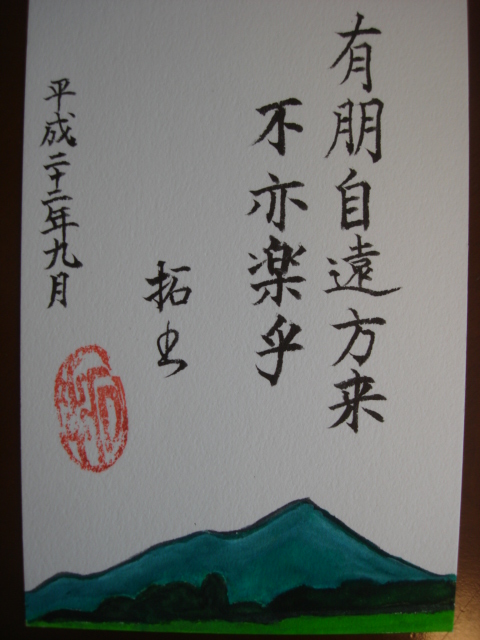 有朋自遠方来
不亦楽乎
拓士
平成二十二年九月